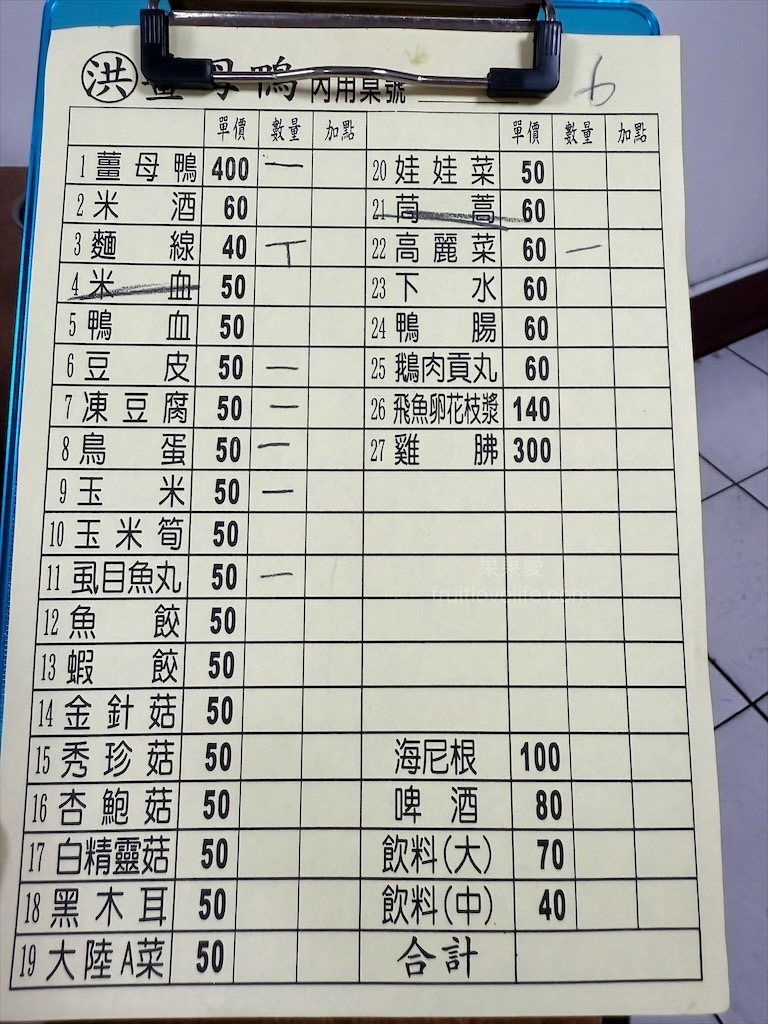 洪 薑母鴨 內用桌號 6
單價 數量 加點 單價 數量 加點
1 薑母鴨 400 一 20 娃娃菜 50
2 米酒 60 21 茼蒿 60
3 麵線 40 丅 22 高麗菜 60 一
4 米血 50 23 下水 60
5 鴨血 50 24 鴨腸 60
6 豆皮 50 一 25 鵝肉貢丸 60
7 凍豆腐 50 一 26 飛魚卵花枝漿 140
8 鳥蛋 50 一 27 雞胇 300
9 玉米 50 一
10 玉米筍 50
11 虱目魚丸 50 一
果果愛
fruitlovelife.com
12 魚餃 50
13 蝦餃 50
14 金針菇 50
15 秀珍菇 50 海尼根 100
16 杏鮑菇 50 啤酒 80
17 白精靈菇 50 飲料(大) 70
18 黑木耳 50 飲料(中) 40
19 大陸A菜 50 合計